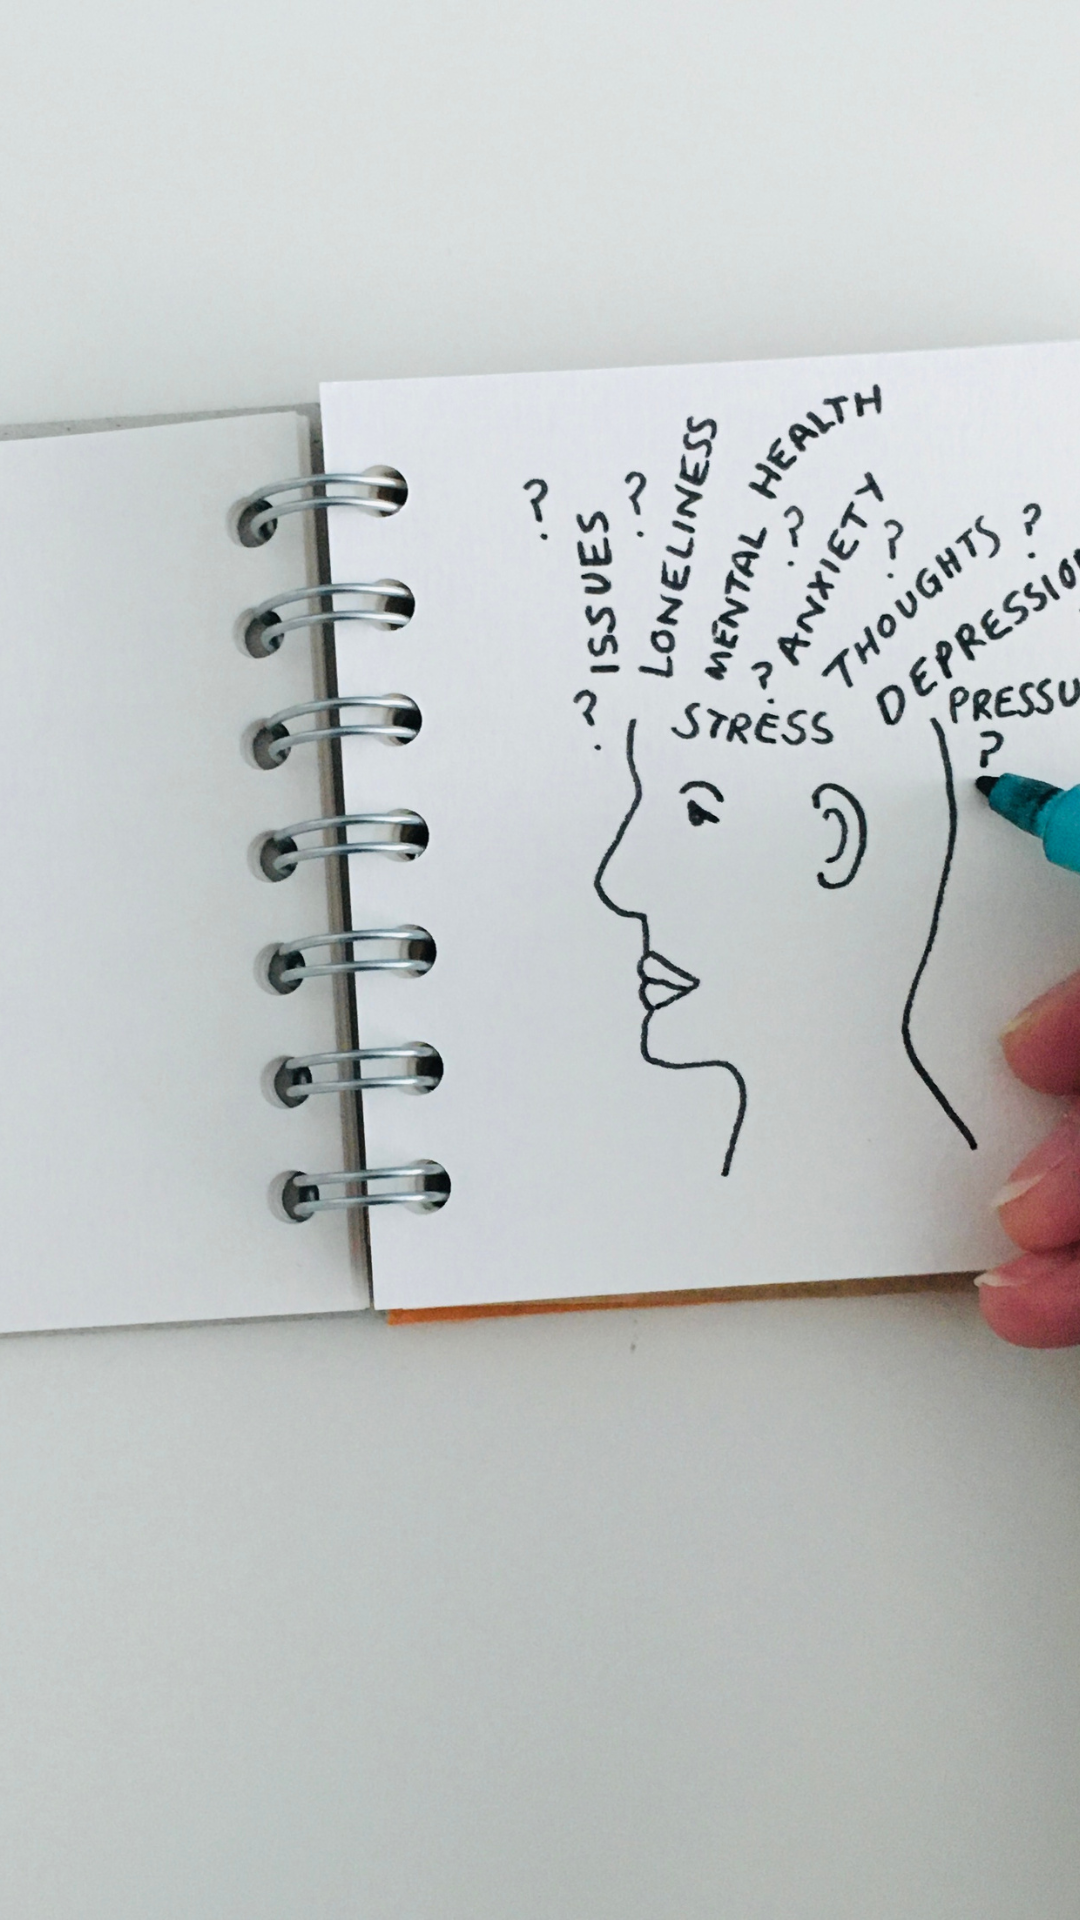 ?
ISSUES
?
?
LONELINESS
MENTAL HEALTH
?
?
ANXIETY
?
THOUGHTS ?
DEPRESSION
STRESS
PRESSU
?